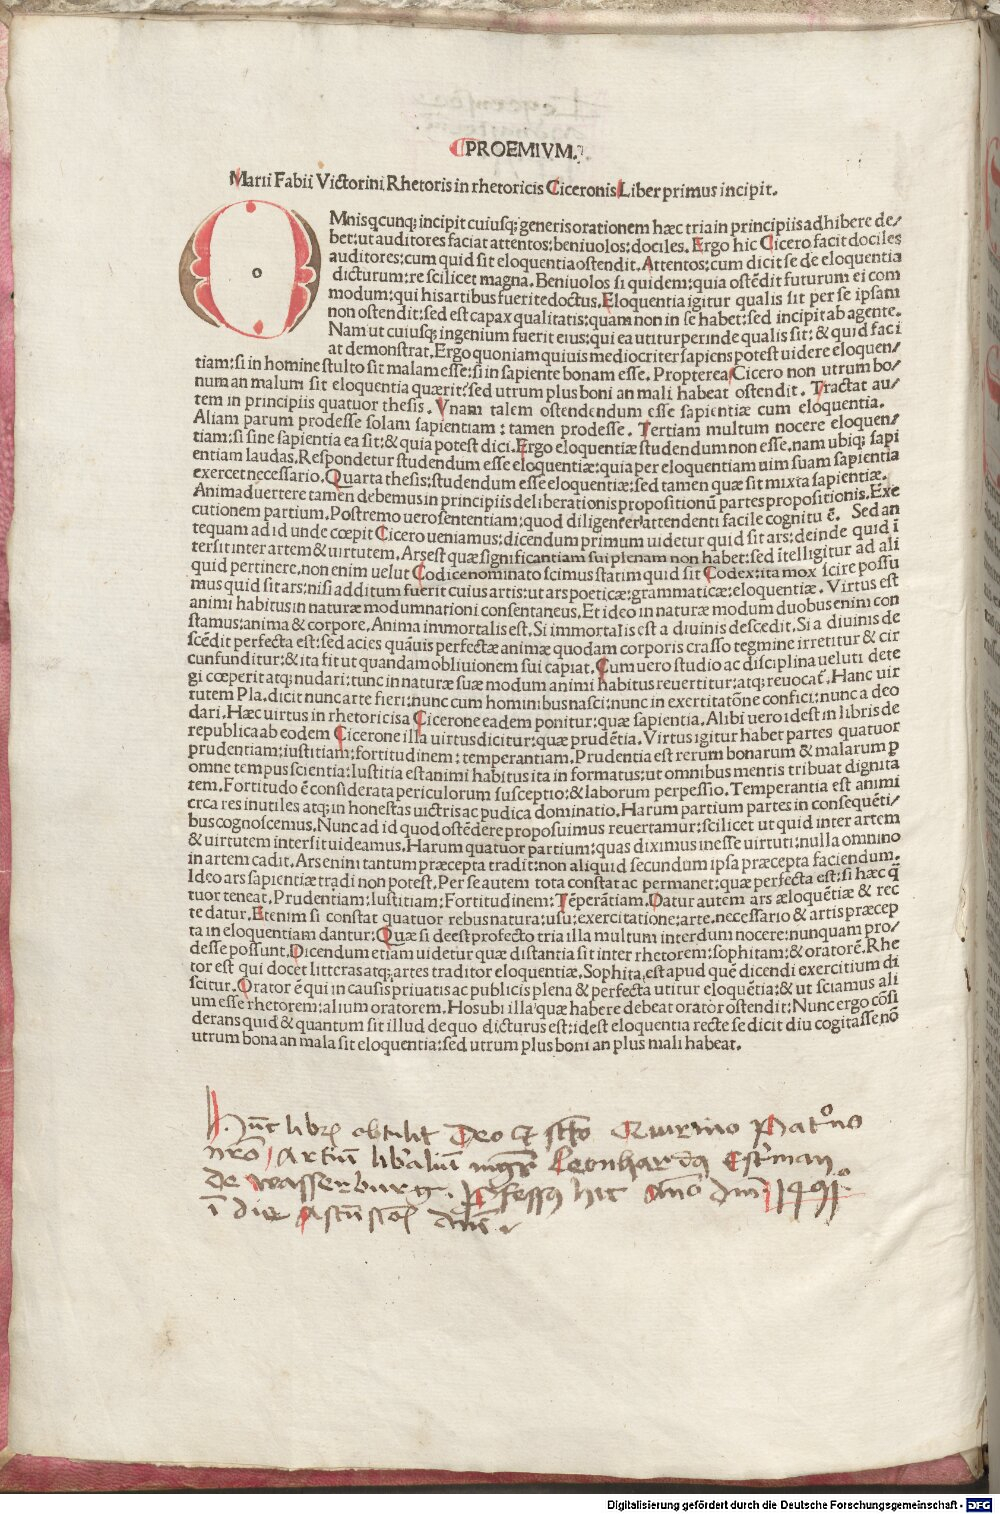 PROEMIVM.
Marii Fabii Victorini Rhetoris in rhetoricis Ciceronis Liber primus incipit.
OMnis qcunq; incipit cuiusq; generis orationem hæc tria in principiis adhibere de/
bet: ut auditores faciat attentos: beniuolos: dociles. Ergo hic Cicero facit dociles
auditores: cum quid sit eloquentia ostendit. Attentos: cum dicit se de eloquentia
dicturum: re scilicet magna. Beniuolos si quidem: quia ostēdit futurum ei com
modum: qui his artibus fuerit edoctus. Eloquentia igitur qualis sit per se ipsam
non ostendit: sed est capax qualitatis: quam non in se habet: sed incipit ab agente.
Nam ut cuiusq; ingenium fuerit eius: qui ea utitur perinde qualis sit: & quid faci
at demonstrat. Ergo quoniam quiuis mediocriter sapiens potest uidere eloquen/
tiam: si in homine stulto sit malam esse: si in sapiente bonam esse. Propterea Cicero non utrum bo/
num an malum sit eloquentia quærit: sed utrum plus boni an mali habeat ostendit. Tractat au/
tem in principiis quatuor thesis. Vnam talem ostendendum esse sapientiæ cum eloquentia.
Aliam parum prodesse solam sapientiam: tamen prodesse. Tertiam multum nocere eloquen/
tiam: si sine sapientia ea sit: & quia potest dici. Ergo eloquentiæ studendum non esse. nam ubiq; sapi
entiam laudas. Respondetur studendum esse eloquentiæ: quia per eloquentiam uim suam sapientia
exercet necessario. Quarta thesis: studendum esse eloquentiæ: sed tamen quæ sit mixta sapientiæ.
Animaduertere tamen debemus in principiis deliberationis propositionū partes propositionis. Exe
cutionem partium. Postremo uero sententiam: quod diligenter attendenti facile cognitu ē. Sed an
tequam ad id unde cœpit Cicero ueniamus: dicendum primum uidetur quid sit ars: deinde quid ī
tersit inter artem & uirtutem. Ars est quæ significantiam sui plenam non habet: sed ītelligitur ad ali
quid pertinere. non enim uelut Codice nominato scimus statim quid sit Codex: ita mox scire possu
mus quid sit ars: nisi additum fuerit cuius artis: ut ars poeticæ: grammaticæ: eloquentiæ. Virtus est
animi habitus in naturæ modum nationi consentaneus. Et ideo in naturæ modum duobus enim con
stamus: anima & corpore. Anima immortalis est. Si immortalis est a diuinis descedit. Si a diuinis de
scēdit perfecta est: sed acies quāuis perfectæ animæ quodam corporis crasso tegmine irretitur & cir
cunfunditur: & ita fit ut quandam obliuionem sui capiat. Cum uero studio ac disciplina ueluti dete
gi cœperit atq; nudari: tunc in naturæ suæ modum animi habitus reuertitur: atq; reuocat̄. Hanc uir
tutem Pla. dicit nunc arte fieri: nunc cum hominibus nasci: nunc in exercitatōne confici: nunc a deo
dari. Hæc uirtus in rhetoricis a Cicerone eadem ponitur: quæ sapientia. Alibi uero idest in libris de
republica ab eodem Cicerone illa uirtus dicitur: quæ prudētia. Virtus igitur habet partes quatuor
prudentiam: iustitiam: fortitudinem: temperantiam. Prudentia est rerum bonarum & malarum ꝑ
omne tempus scientia: Iustitia est animi habitus ita in formatus: ut omnibus mentis tribuat dignita
tem. Fortitudo ē considerata periculorum susceptio: & laborum perpessio. Temperantia est animi
circa res inutiles atq; in honestas uictris ac pudica dominatio. Harum partium partes in consequēti/
bus cognoscemus. Nunc ad id quod ostēdere proposuimus reuertamur: scilicet ut quid inter artem
& uirtutem intersit uideamus. Harum quatuor partium: quas diximus inesse uirtuti: nulla omnino
in artem cadit. Ars enim tantum præcepta tradit: non aliquid secundum ipsa præcepta faciendum.
Ideo ars sapientiæ tradi non potest. Per se autem tota constat ac permanet: quæ perfecta est: si hæc q̄
tuor teneat. Prudentiam: Iustitiam: Fortitudinem: Tēperātiam. Datur autem ars æloquētiæ & rec
te datur. Etenim si constat quatuor rebus natura: usu: exercitatione: arte. necessario & artis præcep
ta in eloquentiam dantur: Quæ si deest profecto tria illa multum interdum nocere: nunquam pro/
desse possunt. Dicendum etiam uidetur quæ distantia sit inter rhetorem: sophitam: & oratorē. Rhe
tor est qui docet litteras atq; artes traditor eloquentiæ. Sophita est apud quē dicendi exercitium di
scitur. Orator ē qui in causis priuatis ac publicis plena & perfecta utitur eloquētia: & ut sciamus ali
um esse rhetorem: alium oratorem. Hos ubi illa quæ habere debeat orator ostendit: Nunc ergo cōsi
derans quid & quantum sit illud de quo dicturus est: idest eloquentia recte se dicit diu cogitasse. nō
utrum bona an mala sit eloquentia: sed utrum plus boni an plus mali habeat.
Hūc librū obtulit Deo Et scto Quirino Patrono
nr̄o Artiū liberaliū mgr Leonhardus Estrman
de wasserburg. Professus hic Anno dm̄ 1491.
ī die Ascensiōis dn̄i
Digitalisierung gefördert durch die Deutsche Forschungsgemeinschaft - DFG